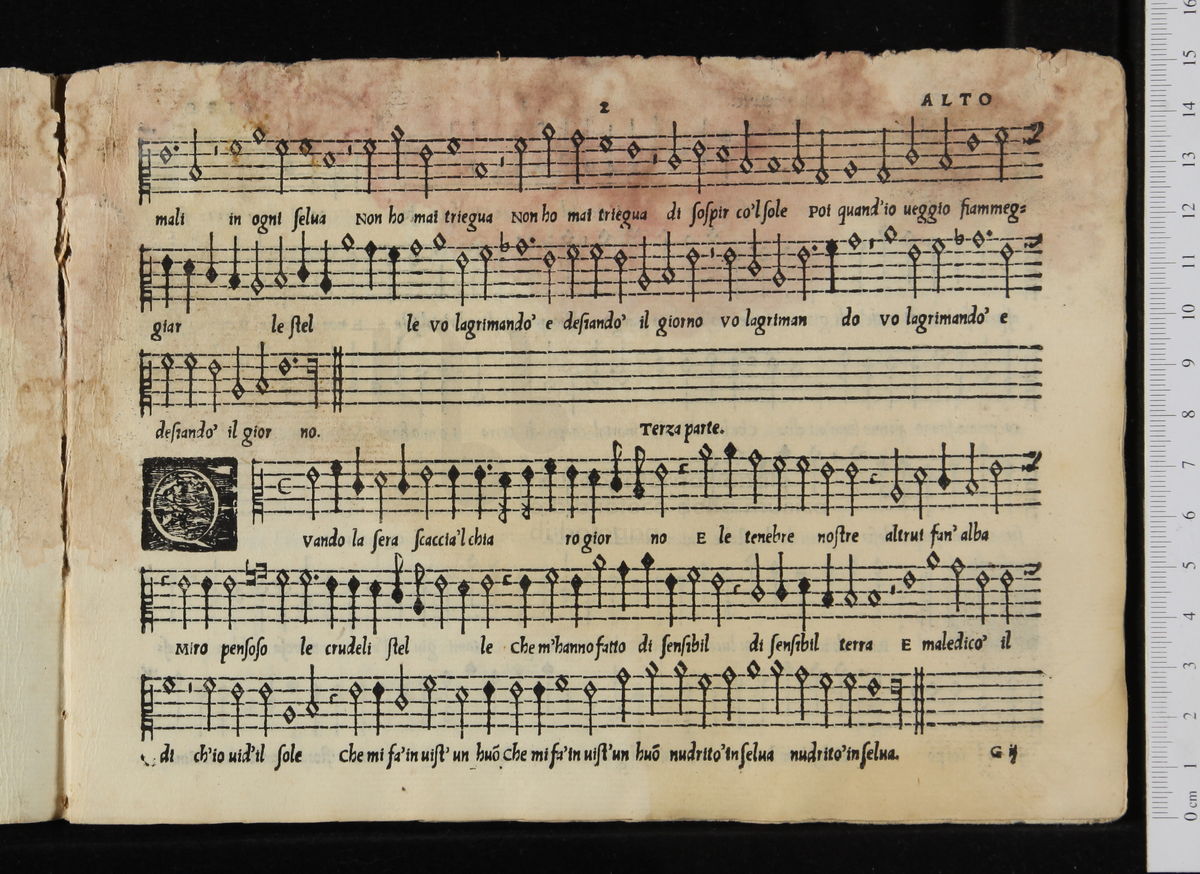 2 ALTO
mali in ogni ſelua Non ho mai triegua Non ho mai triegua di ſoſpir co'l ſole Poi quand'io ueggio fiammeg=
giar le ſtel le vo lagrimando' e deſiando' il giorno vo lagriman do vo lagrimando' e
deſiando' il gior no.
Terza parte.
Q vando la ſera ſcaccia'l chia ro gior no E le tenebre noſtre altrui fan' alba
Miro penſoſo le crudeli ſtel le Che m'hanno fatto di ſenſibil di ſenſibil terra E maledico' il
di ch'io uid'il ſole Che mi fa' in uiſt' un huō Che mi fa' in uiſt' un huō nudrito' in ſelua nudrito' in ſelua.
G ij
0 cm 1 2 3 4 5 6 7 8 9 10 11 12 13 14 15 16